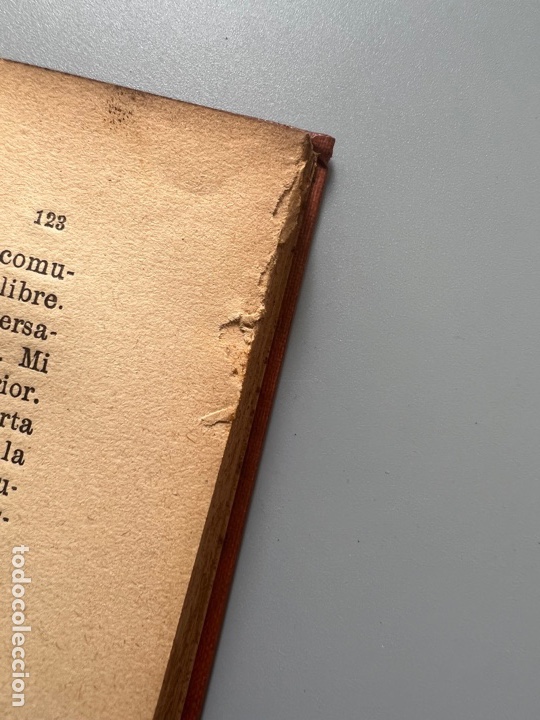 123
comu-
libre.
ersa-
. Mi
rior.
rta
la
u-
todocoleccion